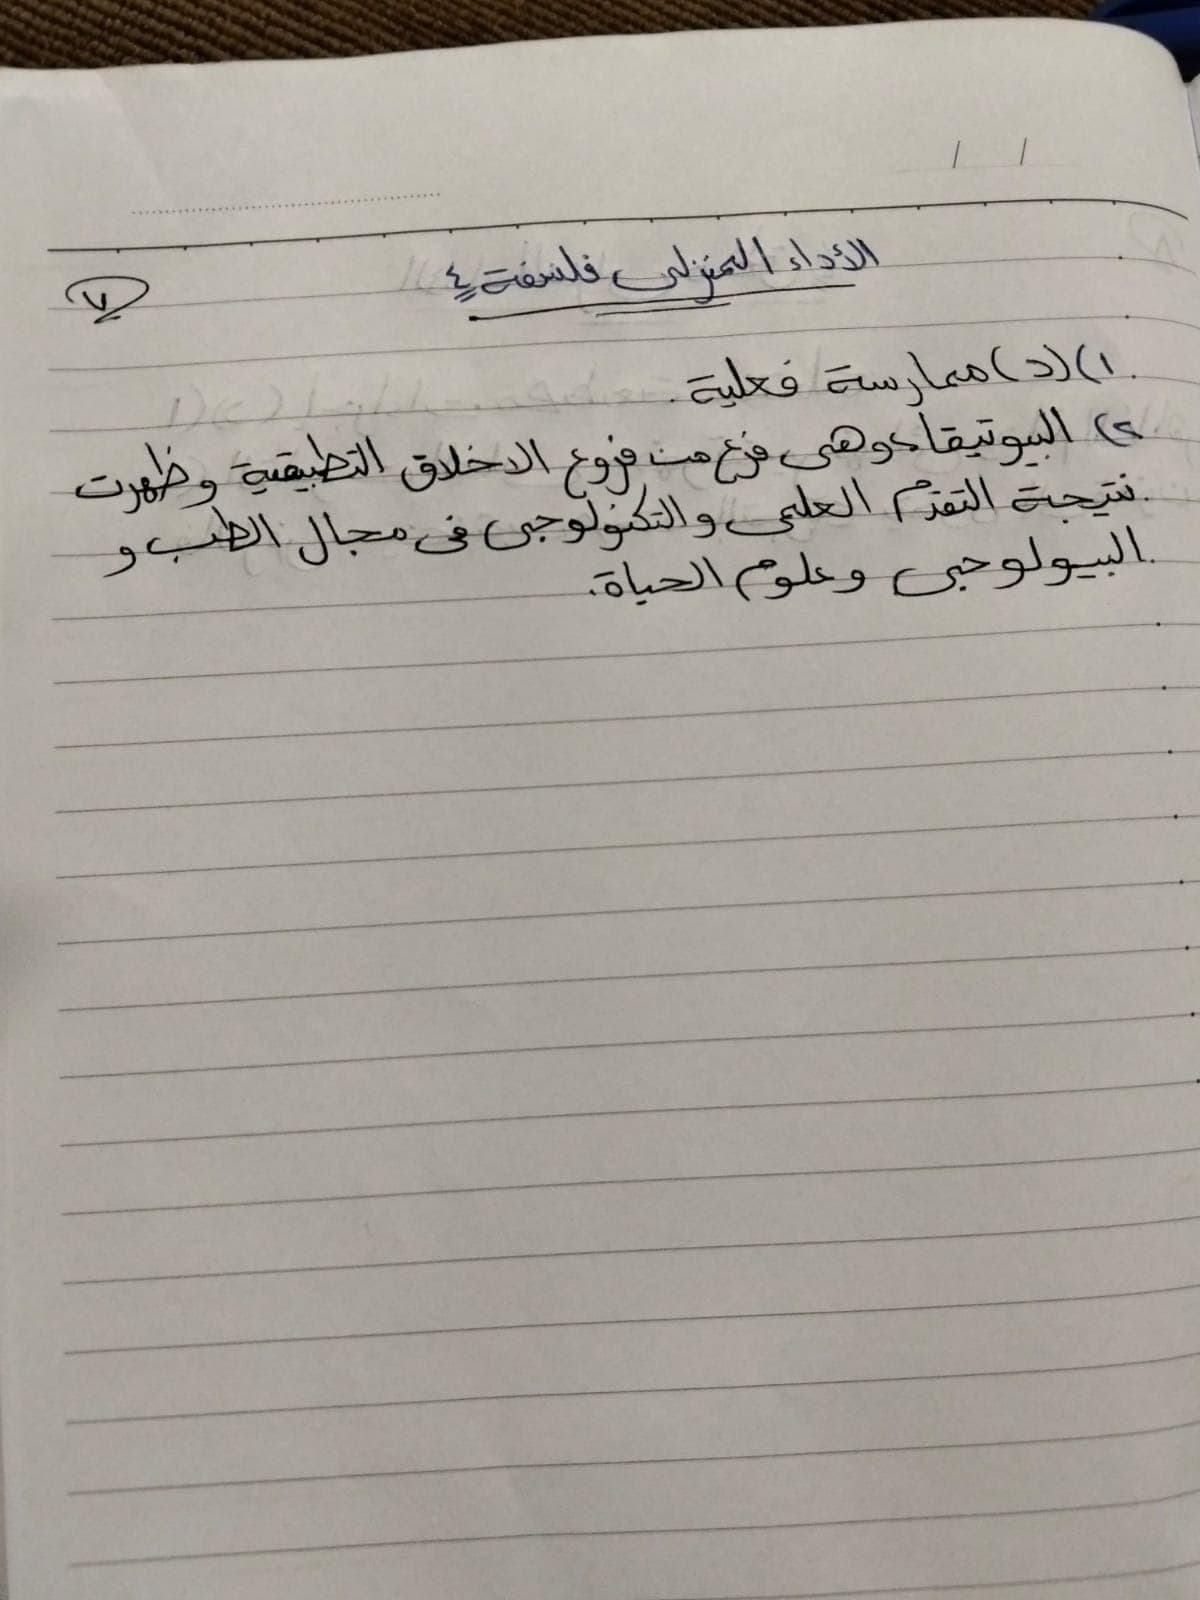 / /
الأداء المنزلى فلسفة ٤
٧
١) (د) ممارسة فعلية.
٢) البيوتيقا، وهى فرع من فروع الاخلاق التطبيقية وظهرت
نتيجة التقدم العلمى والتكنولوجى فى مجال الطب و
البيولوجى وعلوم الحياة.